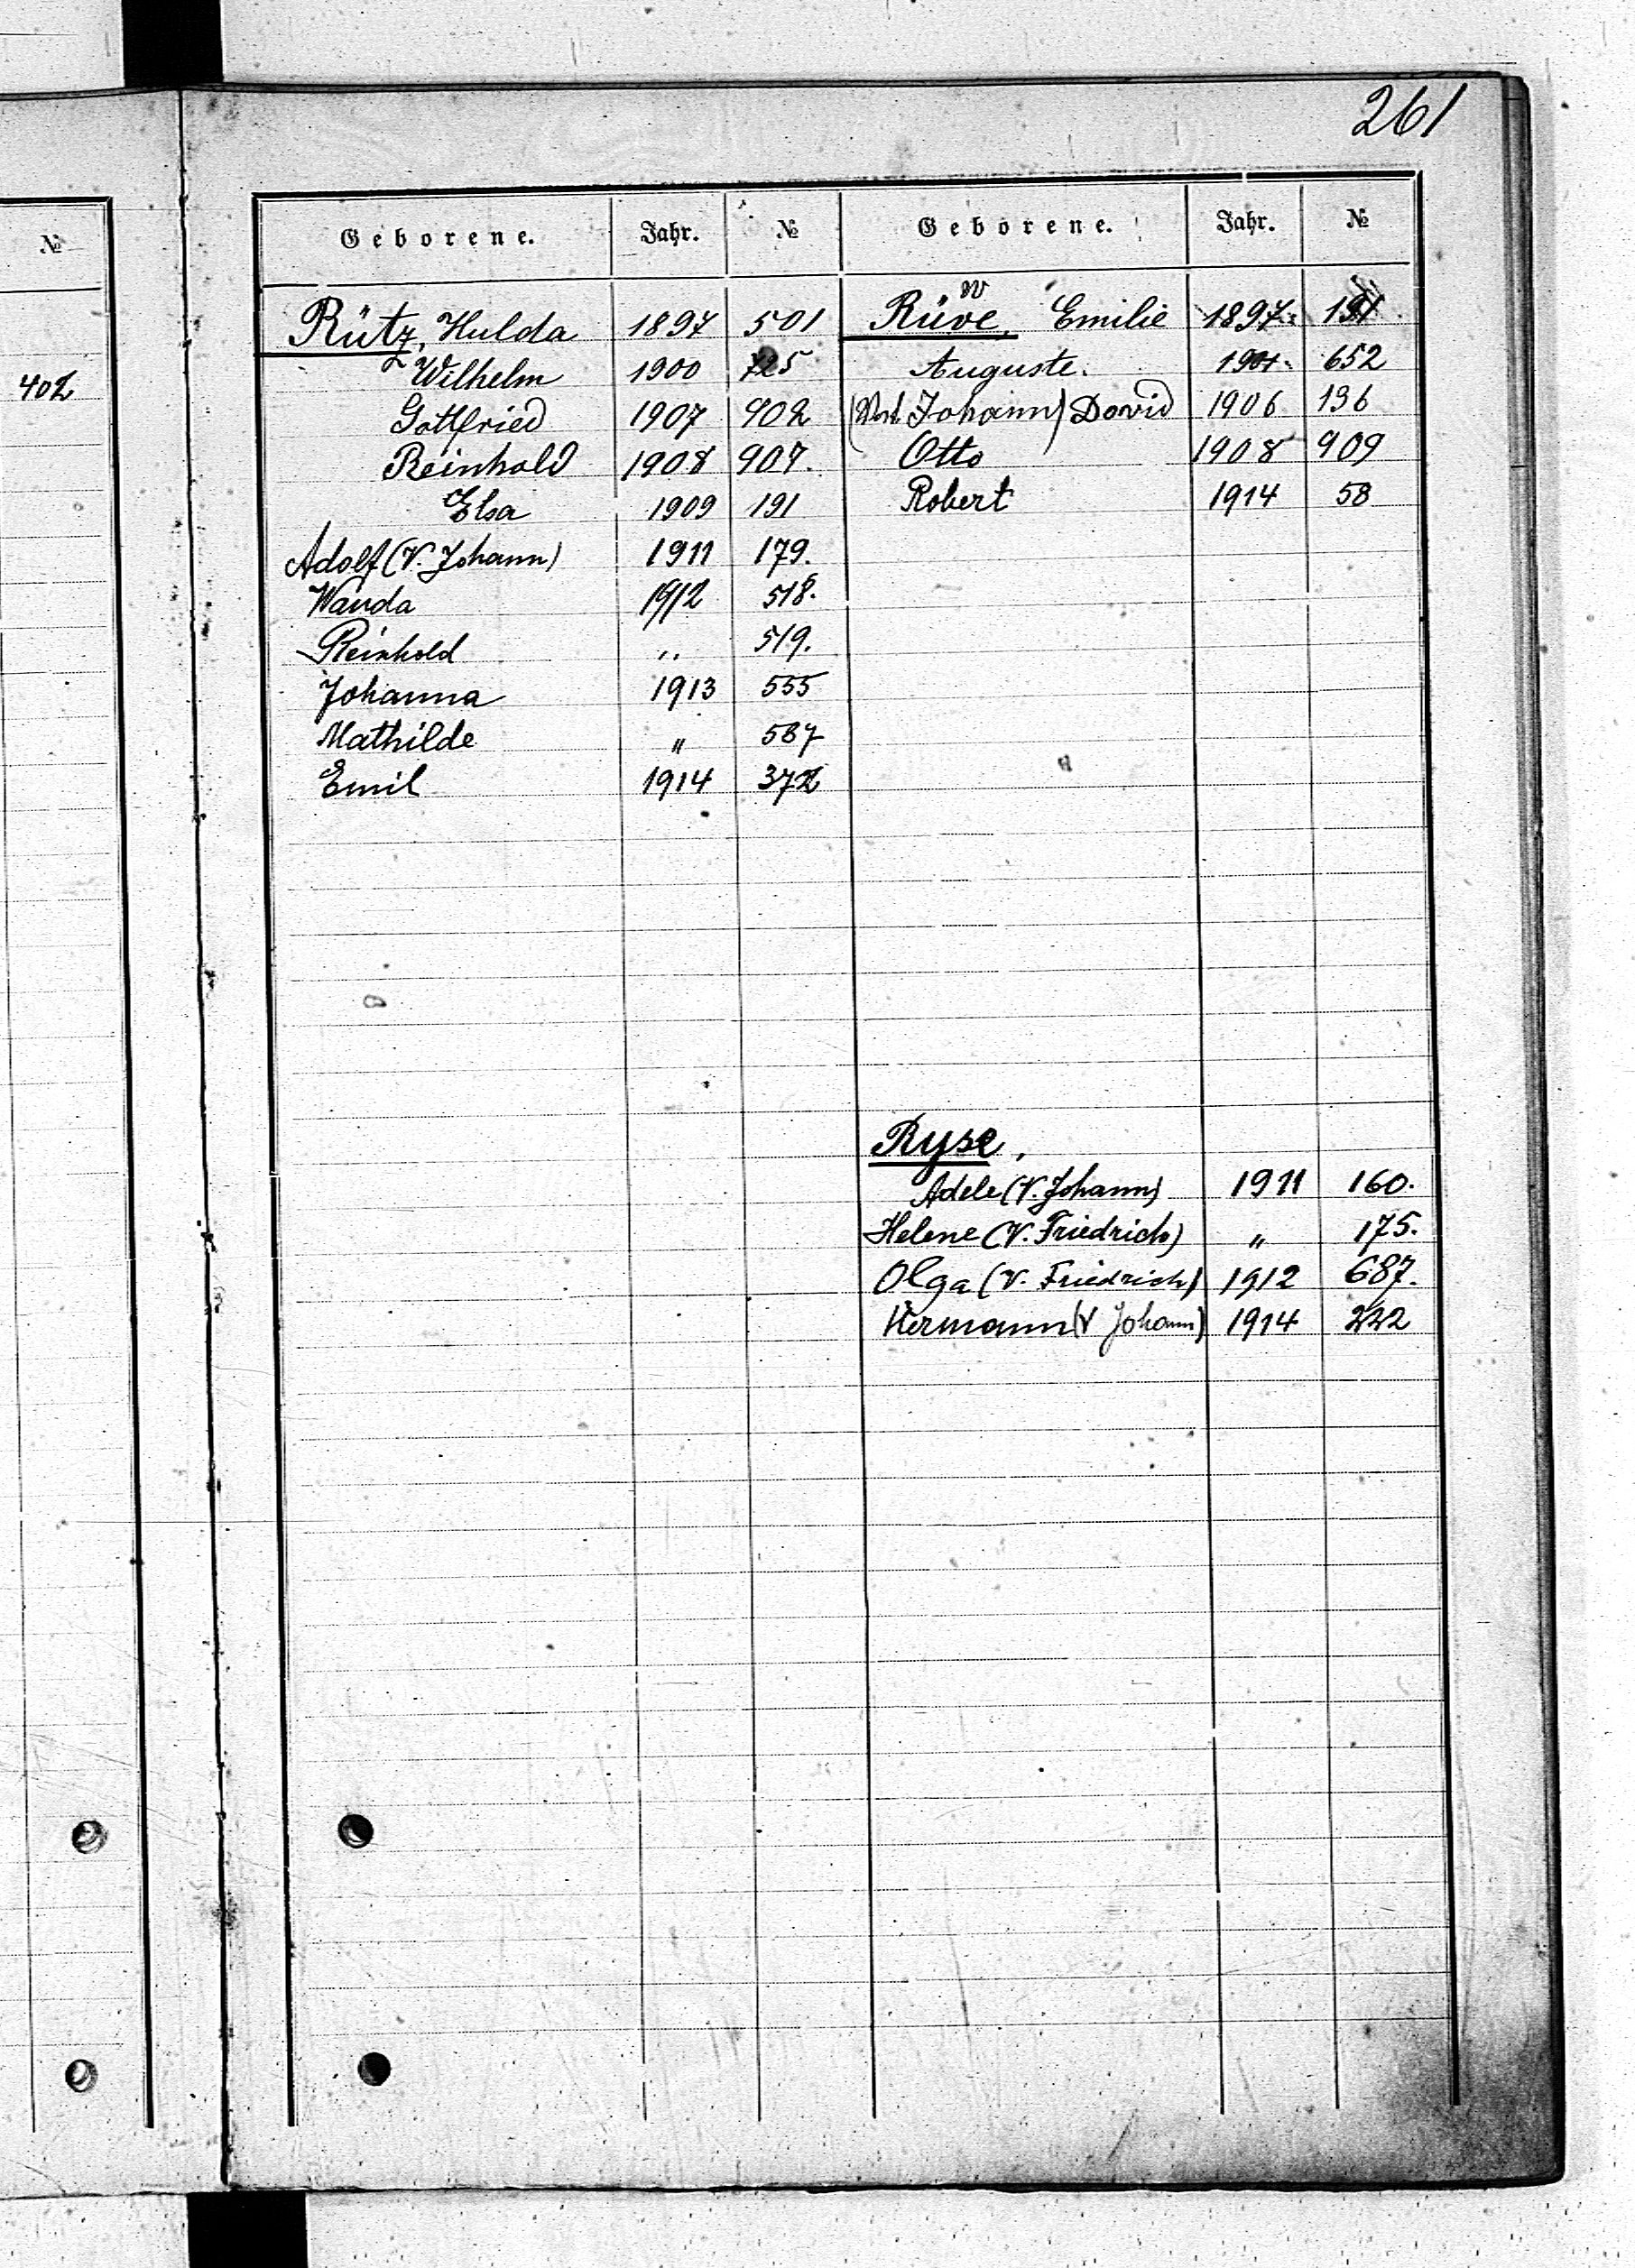 261
№
402
Geborene. Jahr. №
Rütz, Hulda 1897 501
Wilhelm 1900 725
Gottfried 1907 902
Reinhold 1908 907.
Elsa 1909 191
Adolf (V. Johann) 1911 179.
Wanda 1912 518.
Reinhold ,, 519.
Johanna 1913 555
Mathilde " 567
Emil 1914 372
Geborene. Jahr. №
w
Rüve, Emilie 1897.
Auguste. 1901. 652
Johann) David 1906 136
Otto 1908 909
Robert 1914 58
Ryse,
Adele (V. Johann) 1911 160.
Helene (V. Friedrich) " 175.
Olga (V. Friedrich) 1912 687.
Hermann (V Johann) 1914 222